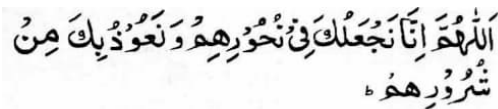 اَللّٰهُمَّ اِنَّا نَجْعَلُكَ فِیْ نُحُوْرِهِمْ وَ نَعُوْذُ بِكَ مِنْ
شُرُوْرِهِمْ ؕ